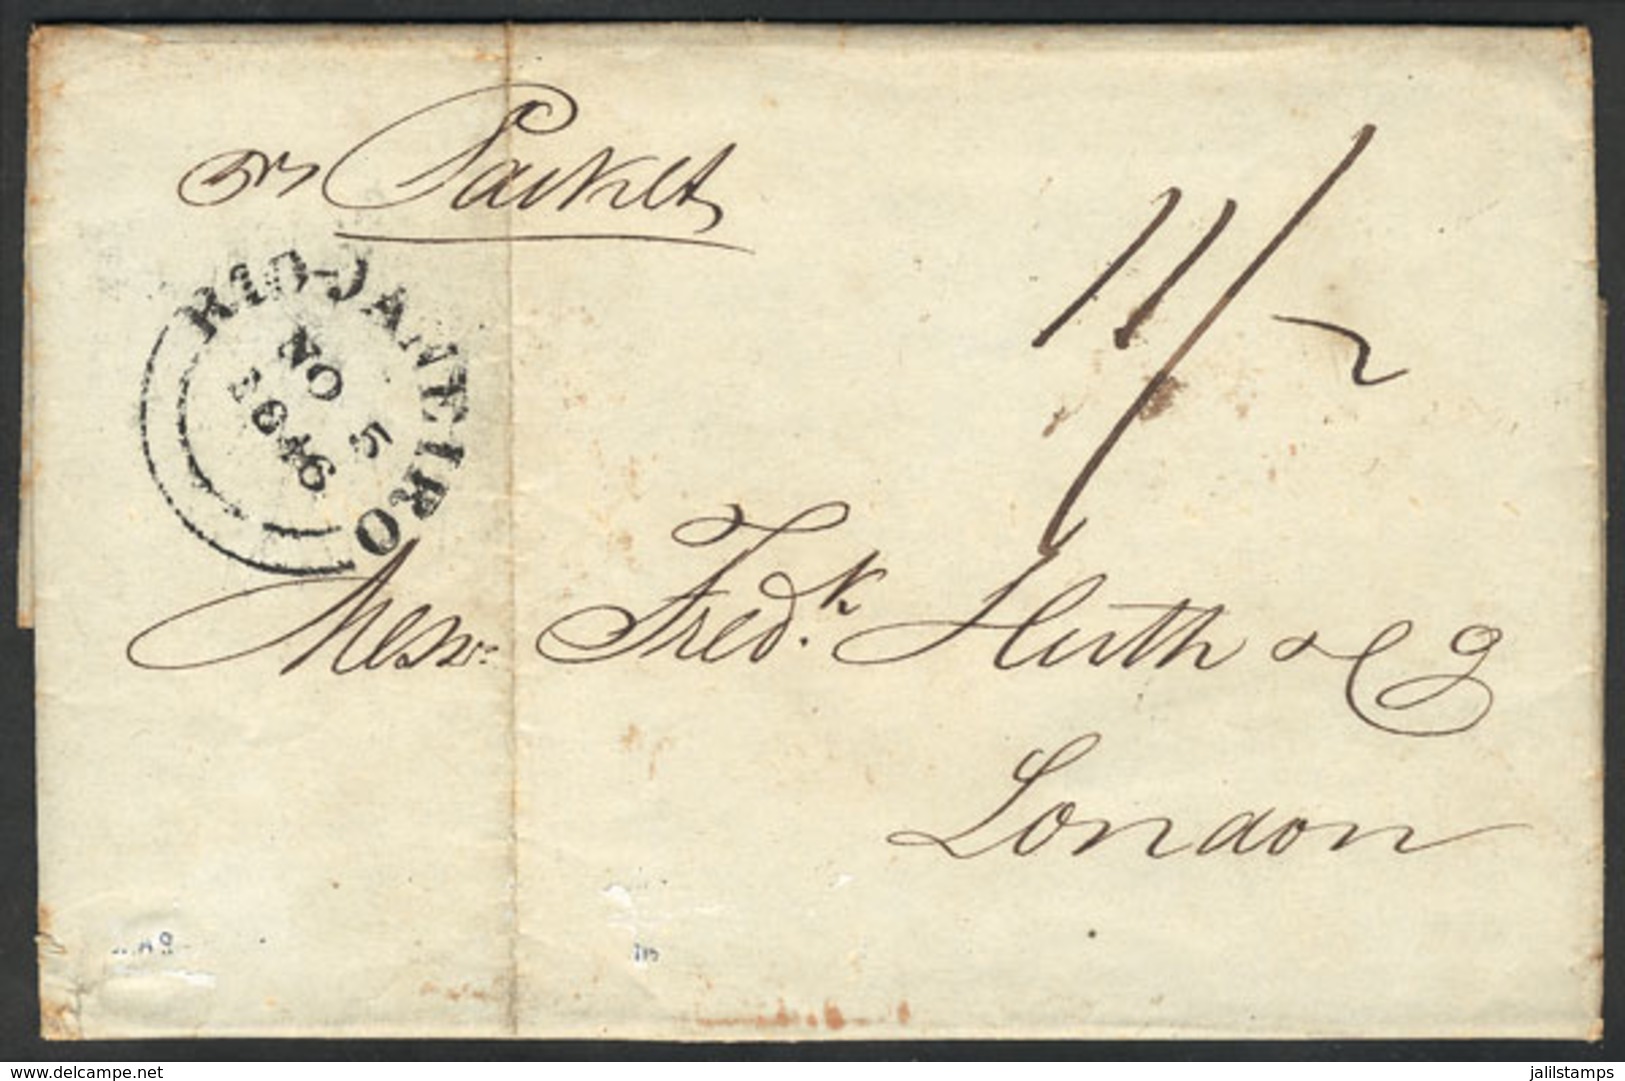 pr Packet
11/2
RIO-JANEIRO
NO 5
1846
Messrs. Fredk. Huth & Co
London
delcampe.net
jalilstamps